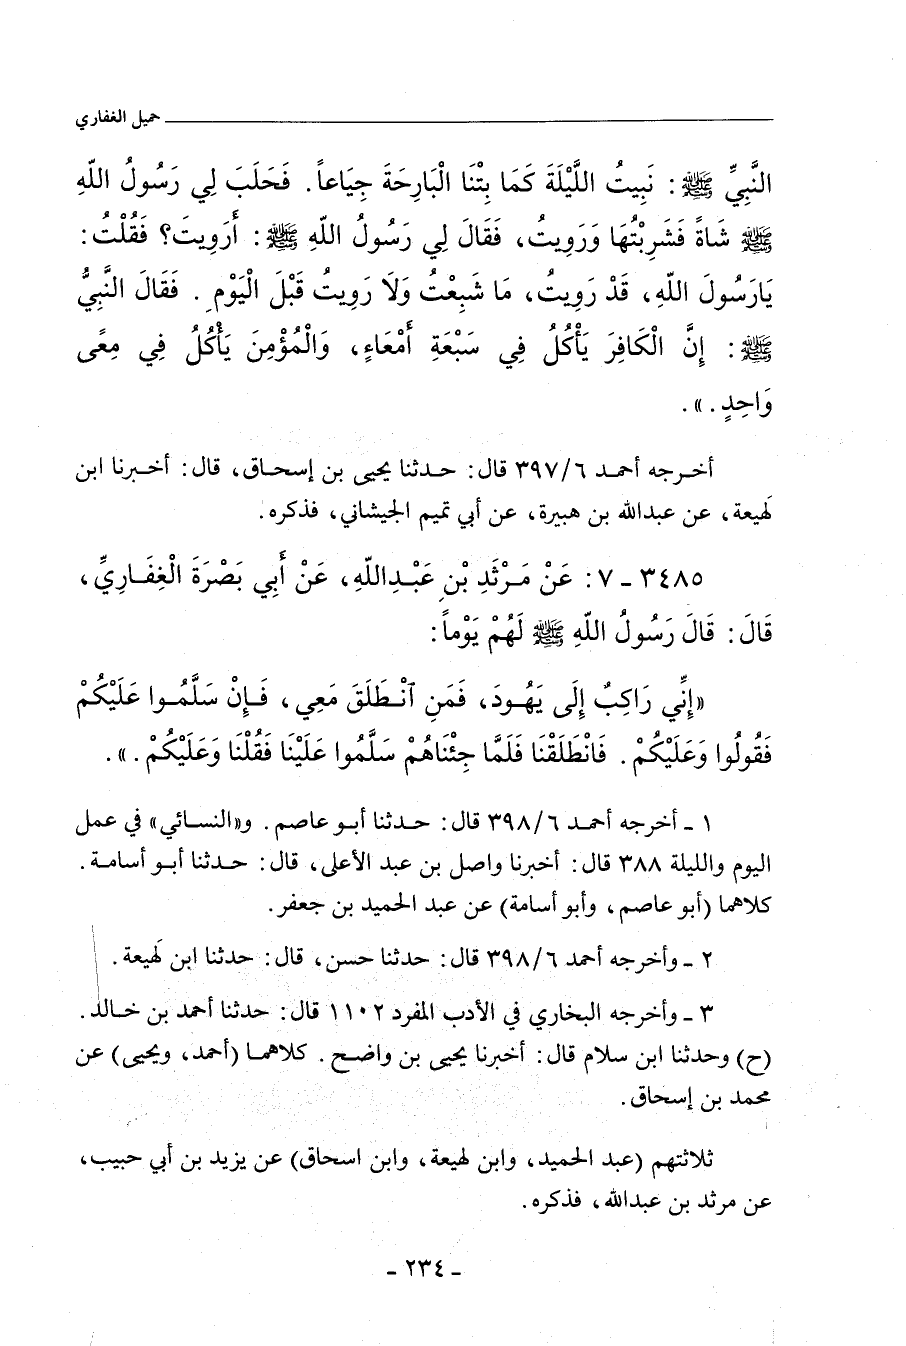 حميل الغفاري
النَّبِيِّ ﷺ: نَبِيتُ اللَّيْلَةَ كَمَا بِتْنَا الْبَارِحَةَ جِيَاعاً. فَحَلَبَ لِي رَسُولُ اللّهِ
ﷺ شَاةً فَشَرِبْتُهَا وَرَوِيتُ، فَقَالَ لِي رَسُولُ اللّهِ ﷺ: أَرَوِيتَ؟ فَقُلْتُ:
يَارَسُولَ اللّهِ، قَدْ رَوِيتُ، مَا شَبِعْتُ وَلَا رَوِيتُ قَبْلَ الْيَوْمِ. فَقَالَ النَّبِيُّ
ﷺ: إِنَّ الْكَافِرَ يَأْكُلُ فِي سَبْعَةِ أَمْعَاءٍ، وَالْمُؤْمِنَ يَأْكُلُ فِي مِعًى
وَاحِدٍ.».
أخرجه أحمد ٣٩٧/٦ قال: حدثنا يحيى بن إسحاق، قال: أخبرنا ابن
لَهيعة، عن عبدالله بن هبيرة، عن أبي تميم الجيشاني، فذكره.
٣٤٨٥ - ٧: عَنْ مَرْثَدِ بْنِ عَبْدِاللّهِ، عَنْ أَبِي بَصْرَةَ الْغِفَارِيِّ،
قَالَ: قَالَ رَسُولُ اللّهِ ﷺ لَهُمْ يَوْماً:
«إِنِّي رَاكِبٌ إِلَى يَهُودَ، فَمَنِ ٱنْطَلَقَ مَعِي، فَإِنْ سَلَّمُوا عَلَيْكُمْ
فَقُولُوا وَعَلَيْكُمْ. فَانْطَلَقْنَا فَلَمَّا جِئْنَاهُمْ سَلَّمُوا عَلَيْنَا فَقُلْنَا وَعَلَيْكُمْ.».
١ - أخرجه أحمد ٣٩٨/٦ قال: حدثنا أبو عاصم. و«النسائي» في عمل
اليوم والليلة ٣٨٨ قال: أخبرنا واصل بن عبد الأعلى، قال: حدثنا أبو أسامة.
كلاهما (أبو عاصم، وأبو أسامة) عن عبد الحميد بن جعفر.
٢ - وأخرجه أحمد ٣٩٨/٦ قال: حدثنا حسن، قال: حدثنا ابن لَهيعة.
٣ - وأخرجه البخاري في الأدب المفرد ١١٠٢ قال: حدثنا أحمد بن خالد.
(ح) وحدثنا ابن سلام قال: أخبرنا يحيى بن واضح. كلاهما (أحمد، ويحيى) عن
محمد بن إسحاق.
ثلاثتهم (عبد الحميد، وابن لهيعة، وابن اسحاق) عن يزيد بن أبي حبيب،
عن مرثد بن عبدالله، فذكره.
- ٢٣٤ -